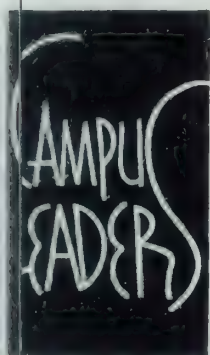 CAMPUS
LEADERS